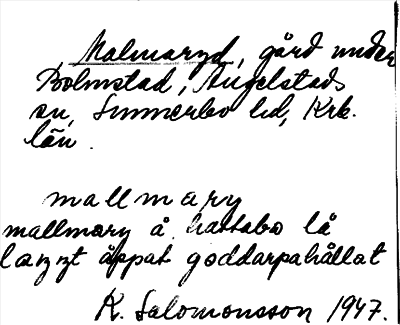 Malmaryd, gård under
Bolmstad, Angelstads
sn, Sunnerbo hd, Krb.
län.
mallmary
mallmary å hattabo lå
lazzt åppat goddarpahållat
K. Salomonsson 1947.